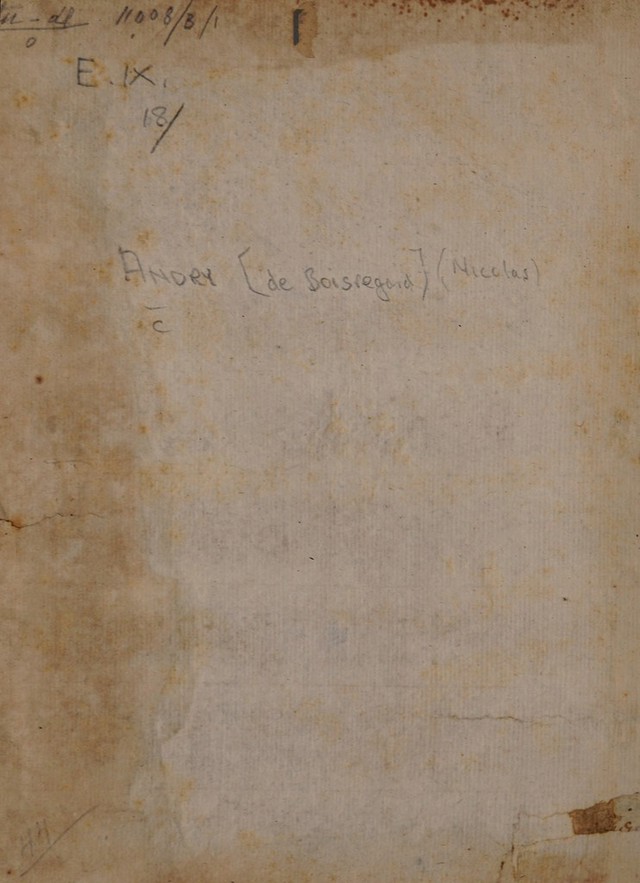 11008/B/1
E.IX.
18/
ANDRY [de Boisregard] (Nicolas)
c
44